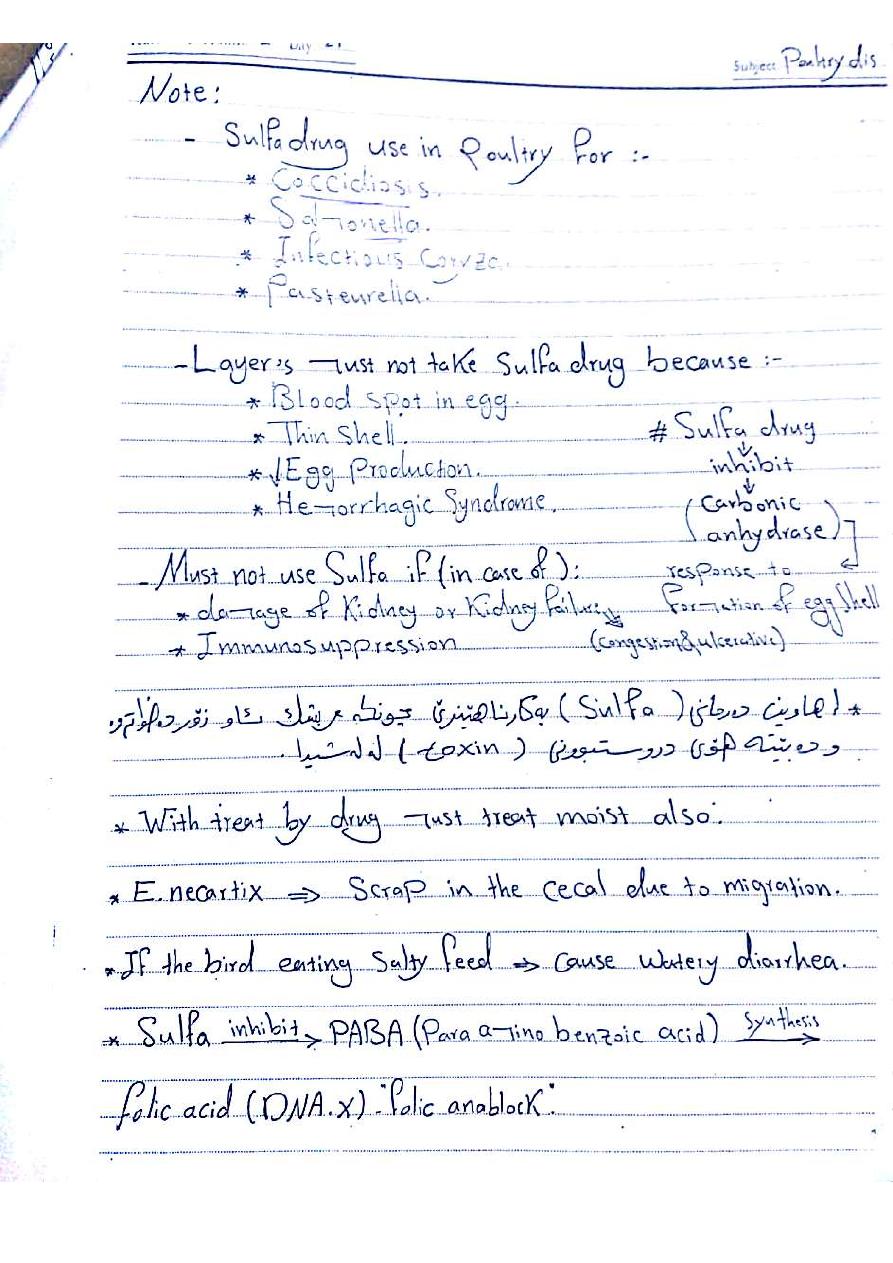 Day 21
Subject Poultry dis
Note:
- Sulfa drug use in Poultry for :-
* Coccidiosis.
* Salmonella.
* Infectious Coryza.
* Pasteurella.
- Layer's must not take Sulfa drug because :-
* Blood spot in egg.
* Thin Shell.
* ↓Egg Production.
* Hemorrhagic Syndrome.
# Sulfa drug
↓
inhibit
↓
(Carbonic
anhydrase)
response to
formation of egg Shell
- Must not use Sulfa if (in case of):
* damage of Kidney or Kidney failure
(congestion & ulcerative)
* Immunosuppression
* هاوین دەرمانی (Sulfa) بەکارناهێنرێ چونکە مریشك ئاو زۆر دەخواتەوە
و دەبێتە هۆی دروستبوونی (toxin) لەلەشیدا.
* With treat by drug must treat moist also.
* E. necartix ⇒ Scrap in the cecal due to migration.
* If the bird eating Salty feed ⇒ cause watery diarrhea.
* Sulfa inhibit → PABA (Para amino benzoic acid) Synthesis →
folic acid (DNA.X) "folic anablock"